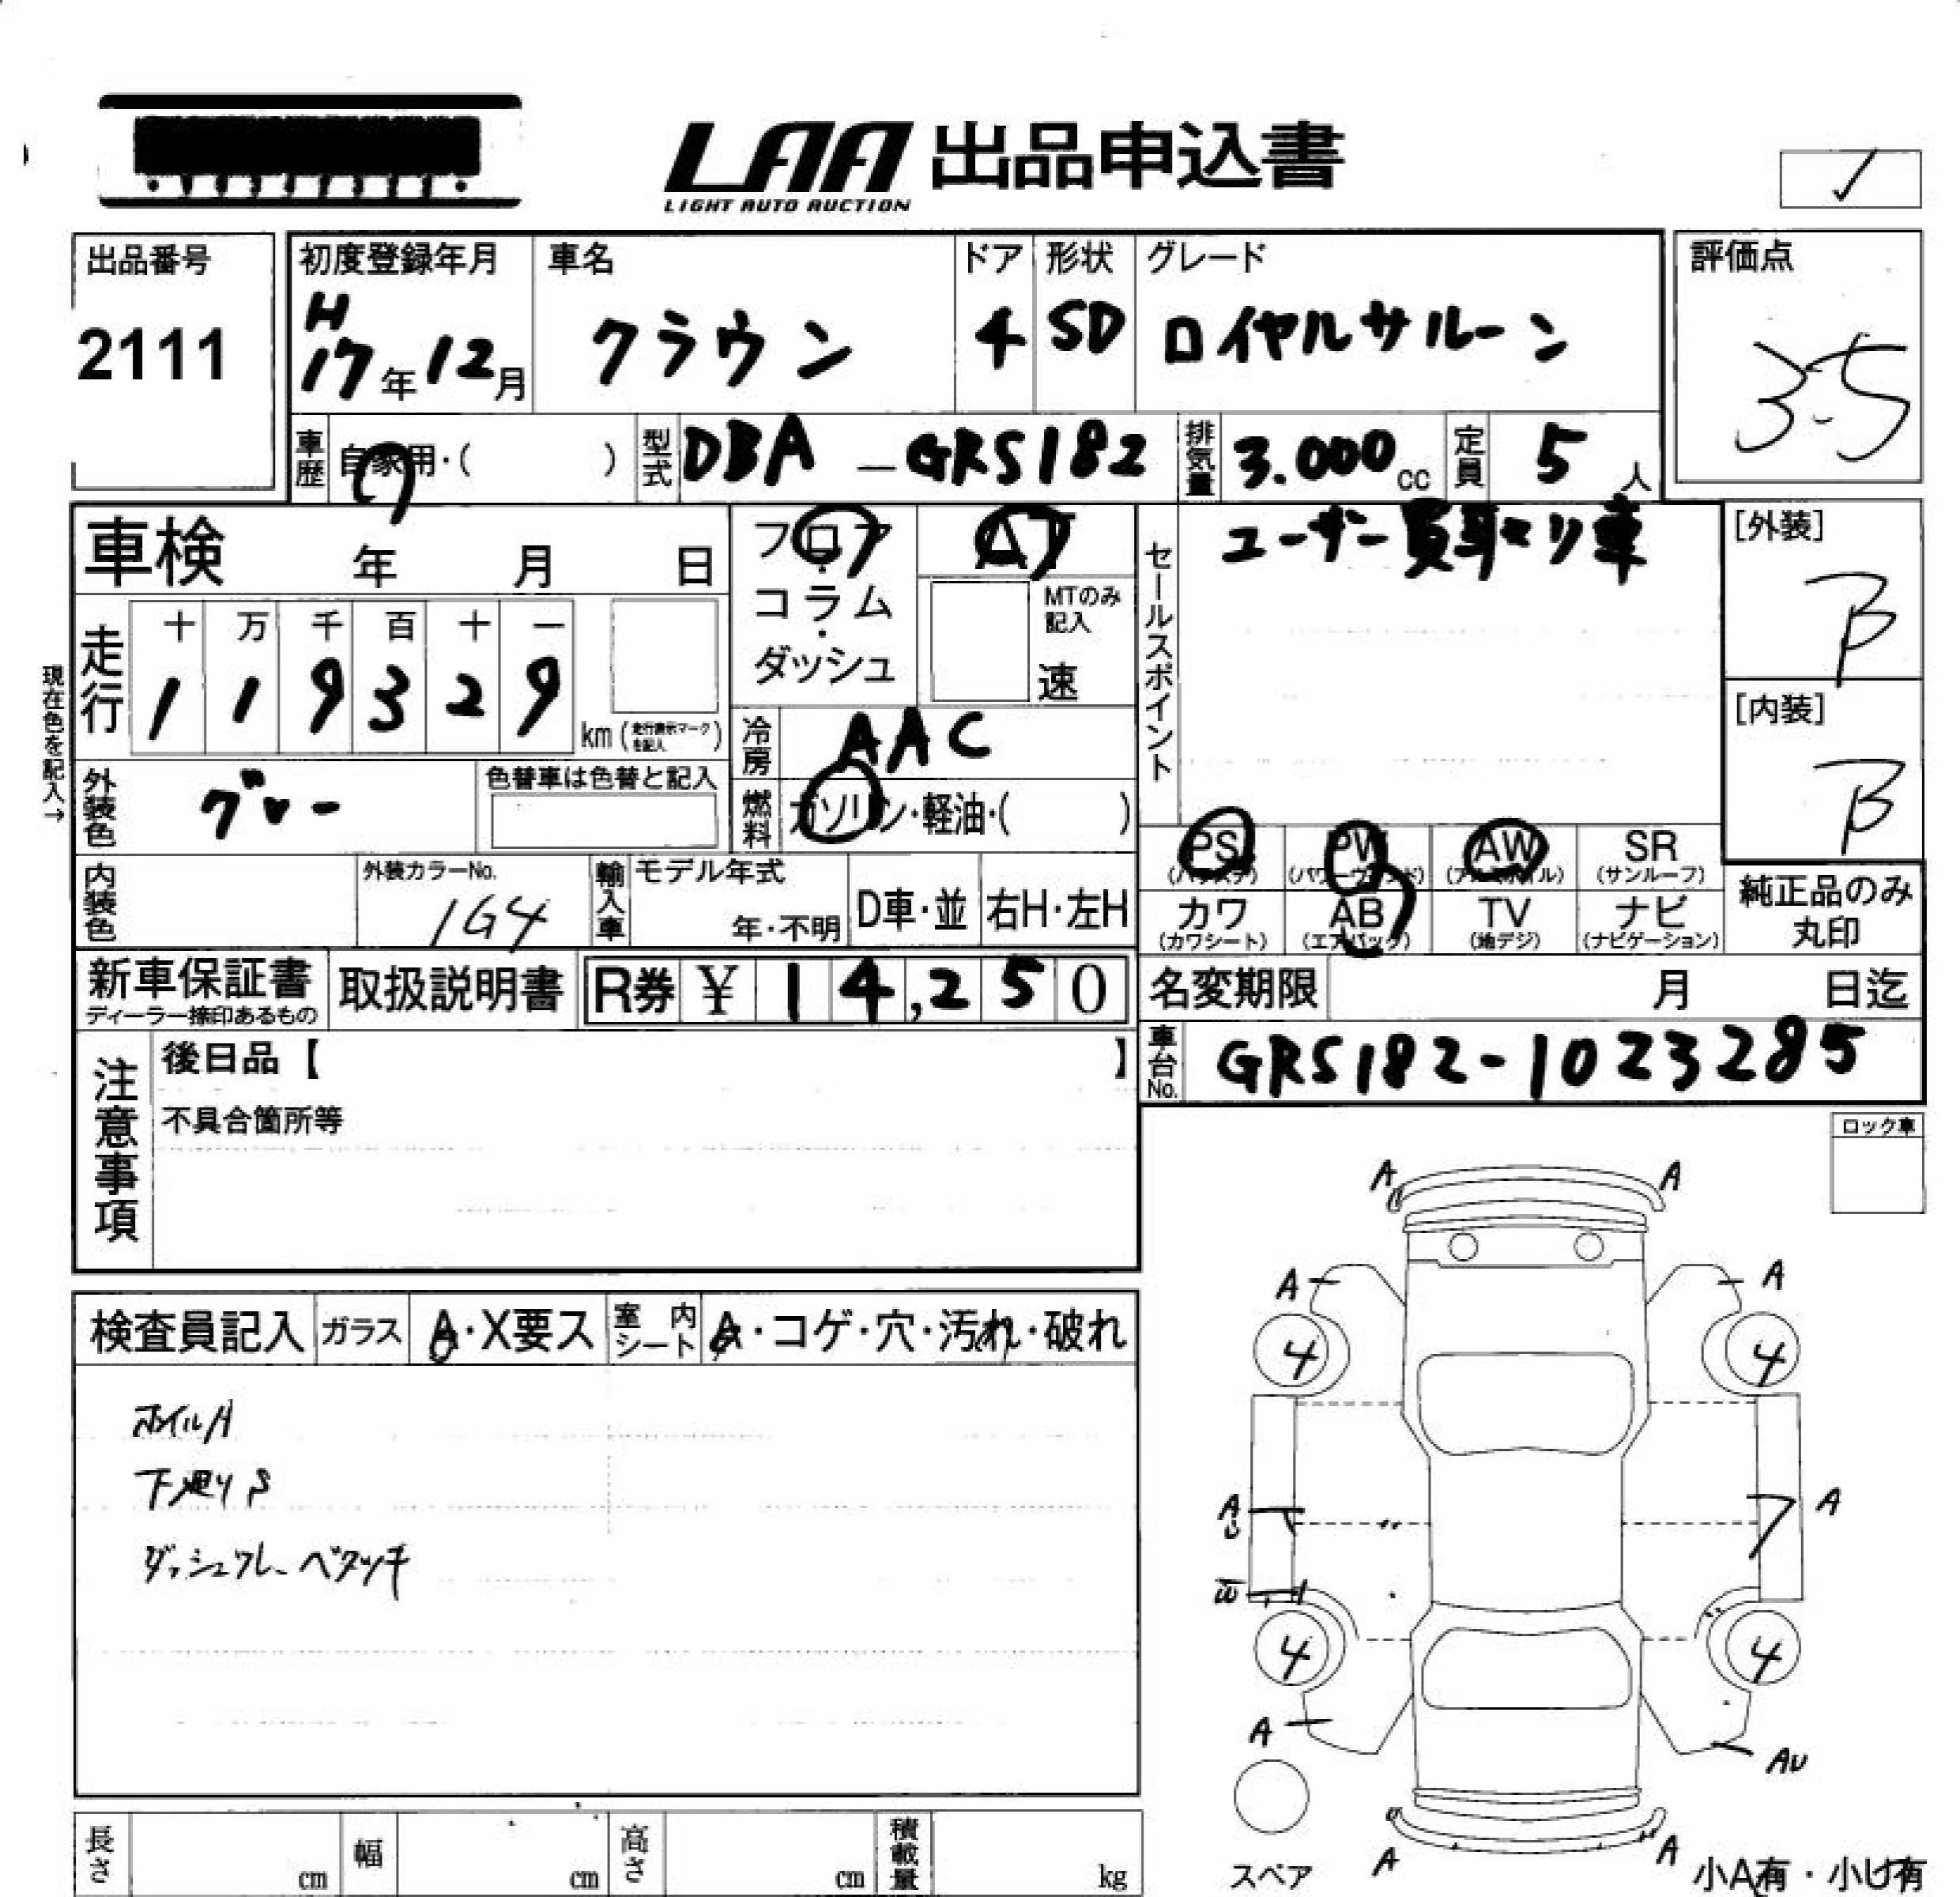 LAA 出品申込書
LIGHT AUTO AUCTION
✓
出品番号
2111
初度登録年月
H
17年12月
車名
クラウン
ドア
4
形状
SD
グレード
ロイヤルサルーン
評価点
3.5
車歴
自家用・( )
型式
DBA-GRS182
排気量
3.000cc
定員
5人
車検 年 月 日
フロア・コラム・ダッシュ
AT
MTのみ記入
速
セールスポイント
ユーザー買取セリ車
[外装]
B
[内装]
B
現在色を記入→
走行
十 万 千 百 十 一
1 1 9 3 2 9
km(走行表示マークを記入)
冷房
AAC
燃料
ガソリン・軽油・( )
外装色
グレー
色替車は色替と記入
内装色
外装カラーNo.
1G4
輸入車
モデル年式
年・不明
D車・並
右H・左H
PS
(パワステ)
PW
(パワーウィンド)
AW
(アルミホイル)
SR
(サンルーフ)
カワ
(カワシート)
AB
(エアバック)
TV
(地デジ)
ナビ
(ナビゲーション)
純正品のみ丸印
新車保証書
ディーラー捺印あるもの
取扱説明書
R券 ¥ 14,250
名変期限 月 日迄
車台No.
GRS182-1023285
注意事項
後日品【 】
不具合箇所等
ロック車
検査員記入
ガラス
A・X要ス
室内シート
A・コゲ・穴・汚れ・破れ
ホイルA
下廻りS
ダッシュクレーベタツキ
A A
A A
4 4
A A
4 4
A AU
A A
スペア
小A有・小U有
長さ cm
幅 cm
高さ cm
積載量 kg